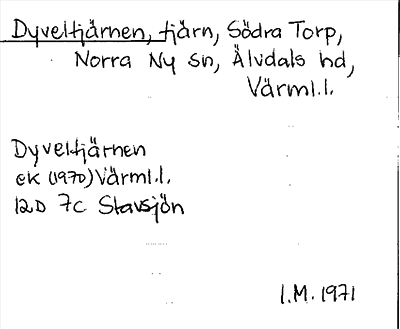 Dyveltjärnen, tjärn, Södra Torp,
Norra Ny sn, Älvdals hd,
Värml.l.
Dyveltjärnen
ek (1970) Värml.l.
12D 7C Stavsjön
I.M. 1971